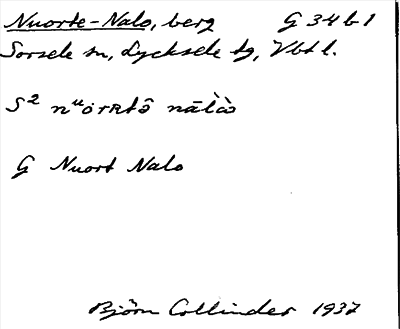 Nuorte-Nalo, berg G 34 b 1
Sorsele sn, Lycksele tg, Vbtl.
S² nᵘȯrʀtô nālò̀
G Nuort Nalo
Björn Collinder 1937